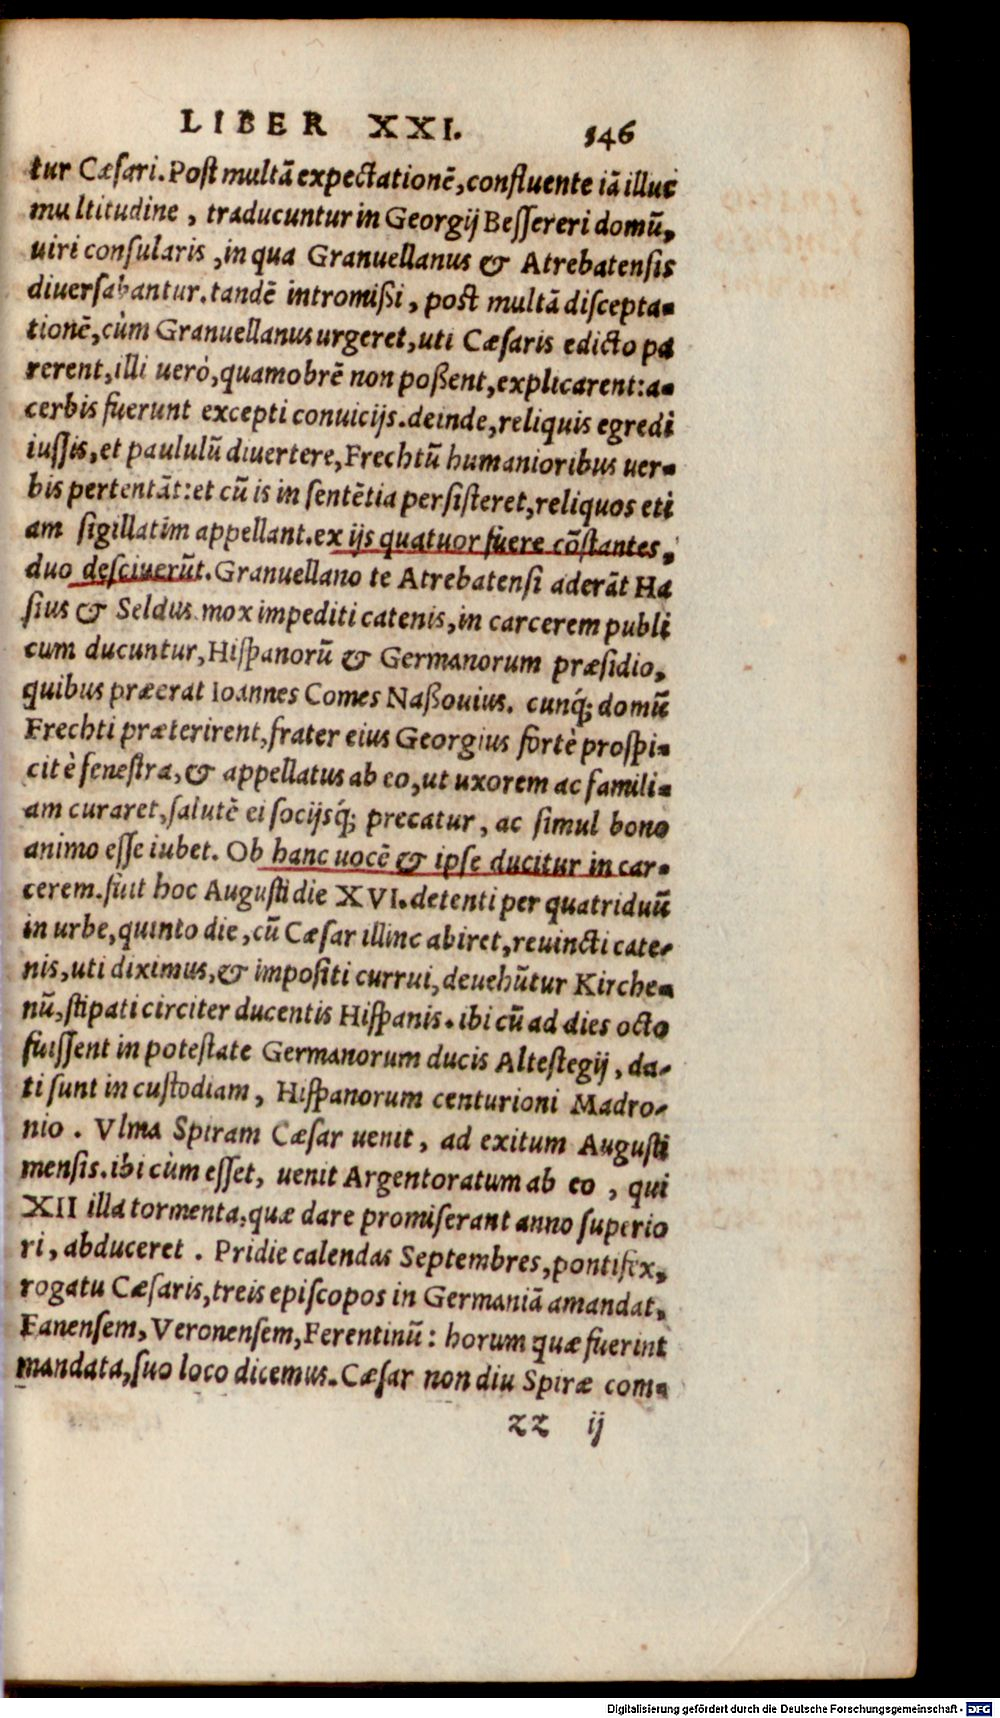 LIBER XXI. 546
tur Cæsari. Post multā expectationē, confluente iā illuc
multitudine, traducuntur in Georgij Bessereri domū,
uiri consularis, in qua Granuellanus & Atrebatensis
diuersabantur. tandē intromißi, post multā discepta-
tionē, cùm Granuellanus urgeret, uti Cæsaris edicto pa
rerent, illi uerò, quamobrē non poßent, explicarent: a-
cerbis fuerunt excepti conuicijs. deinde, reliquis egredi
iussis, et paululū diuertere, Frechtū humanioribus uer-
bis pertentāt: et cū is in sentētia persisteret, reliquos eti
am sigillatim appellant. ex ijs quatuor fuere cōstantes,
duo desciuerūt. Granuellano te Atrebatensi aderāt Ha
sius & Seldus. mox impediti catenis, in carcerem publi
cum ducuntur, Hispanorū & Germanorum præsidio,
quibus præerat Ioannes Comes Naßouius. cunq́; domū
Frechti præterirent, frater eius Georgius fortè prospi-
cit è fenestra, & appellatus ab eo, ut uxorem ac famili-
am curaret, salutē ei socijsq́; precatur, ac simul bono
animo esse iubet. Ob hanc uocē & ipse ducitur in car-
cerem. fuit hoc Augusti die XVI. detenti per quatriduū
in urbe, quinto die, cū Cæsar illinc abiret, reuincti cate-
nis, uti diximus, & impositi currui, deuehūtur Kirche-
nū, stipati circiter ducentis Hispanis. ibi cū ad dies octo
fuissent in potestate Germanorum ducis Altestegij, da-
ti sunt in custodiam, Hispanorum centurioni Madro-
nio. Vlma Spiram Cæsar uenit, ad exitum Augusti
mensis. ibi cùm esset, uenit Argentoratum ab eo, qui
XII illa tormenta, quæ dare promiserant anno superio
ri, abduceret. Pridie calendas Septembres, pontifex,
rogatu Cæsaris, treis episcopos in Germaniā amandat,
Fanensem, Veronensem, Ferentinū: horum quæ fuerint
mandata, suo loco dicemus. Cæsar non diu Spiræ com-
zz ij
Digitalisierung gefördert durch die Deutsche Forschungsgemeinschaft - DFG